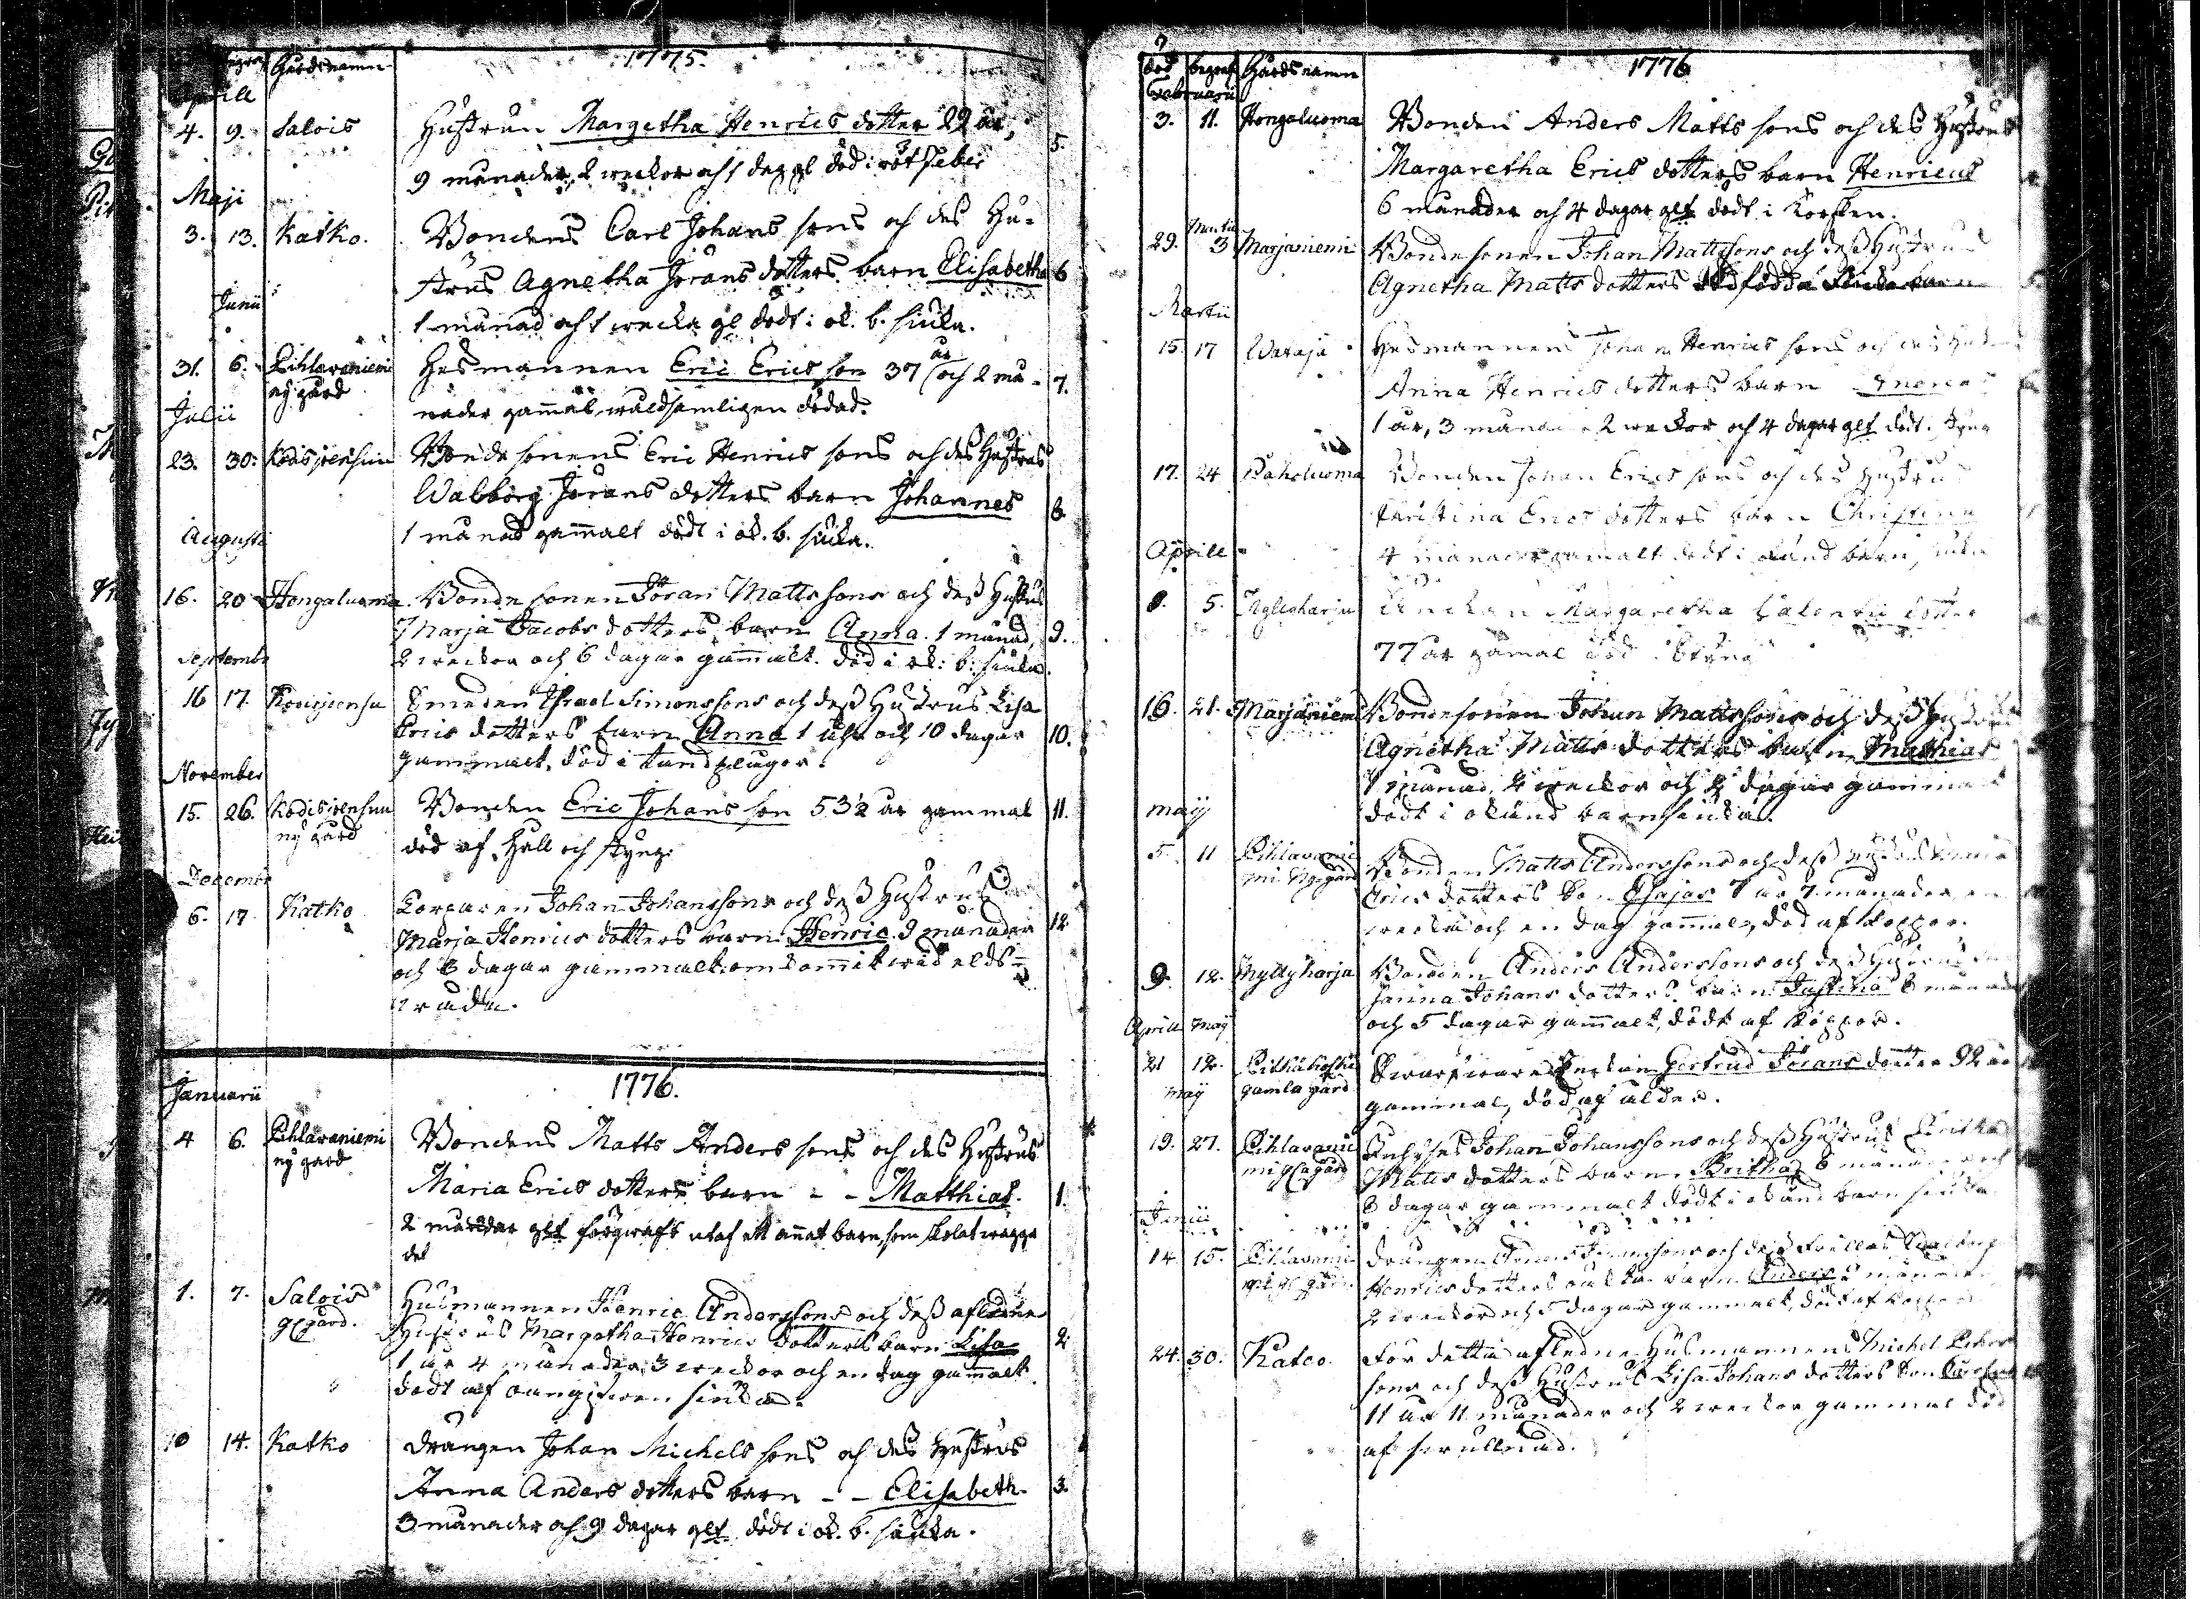 begrafn Gårdsnamn 1775.
Aprill
4. 9. Salois Hustrun Margetha Henrics dotter 29 år,
9 månader, 2 weckor och 1 dag gl död i rötfeber 5.
Maji
3. 13. Katko. Bondens Carl Johans sons och des Hu-
strus Agnetha Jörans dotters barn Elisabetha 6
Junii
1 månad och 1 wecka gl dödt i ok. b. siuka.
31. 6. Pihlavaniemi Husmannen Eric Erics son 37 år och 2 må- 7.
ny gård
nader gammal wåldsamligen dödad.
Julii
23. 30. Kodisjoensuu Bonde sonens Eric Henrics sons och des Hustrus
Walborg Jörans dotters barn Johannes 8
1 månad gammalt dödt i ok. b. siuka.
Augusti
16. 20 Hongaluoma. Bonde sonen Jöran Matts sons och dess Hustrus
Marja Jacobs dotters barn Anna. 1 månad, 9.
2 weckor och 6 dagar gammalt. död i ok: b: siuka.
Septembr
16 17. Smeden Israel Simonssons och dess Hustrus Lisa
Erics dotters barn Anna 1 åhr och 10 dagar 10.
gammalt, död i tandplågor.
November
15. 26. Kodisjoensuu Bonden Eric Johans son 53½ år gammal 11.
ny gård
död af Håll och styng.
Decembr
6. 17. Katko Johan Johanssons och dess Hustrus
Marja Henrics dotters barn Henric 9 månader 12
och 6 dagar gammalt omkommit wid elds-
wåda.
Januarii 1776.
4 6. Pihlavaniemi Bondens Matts Anders sons och des Hustrus
ny gård
Maria Erics dotters barn - - Matthias. 1.
2 månader glt utaf ett annat barn, som skolat wagga
det
1. 7. Salois Husmannen Henric Anderssons och dess aflidne
gl gård. Hustrus Margetha Henrics dotters barn Lisa 2.
1 år 4 månader 3 weckor och en dag gammalt
dödt af oangifwen siuka.
10 14. Katko Drängen Johan Michels sons och des Hustrus
Anna Anders dotters barn - - Elisabeth. 3.
3 månader och 9 dagar glt dödt i ok. b. siuka.
död begraf Gårdsnamn 1776
Februarii
3. 11. Hongaluoma Bonden Anders Matts sons och des Hustrus
Margaretha Erics dotters barn Henricus
6 månader och 4 dagar glt dödt i
Martii
29. 3 Marjaniemi Bonde sonen Johan Mattssons och dess Hustrus
Agnetha Matts dotters dödfödda
Martii
15. 17 Wataja Husmannens Johan Henrics sons och des Hustrus
Anna Henrics dotters barn
1 år, 3 månader 2 weckor och 4 dagar glt dödt i styng
17. 24 Paholuoma Bonden Johan Erics sons och des Hustrus
Christina Erics dotters barn Christina
4 månader gamalt dödt i okänd barn siuka
Aprill
5. Enckan Margaretha dotter
77 år gamal död i styng
16. 21. Marjaniemi Bondesonen Johan Mattssons och dess Hustrus
Agnetha Matts dotters barn Mathias
1 månad, weckor och 2 dagar gammalt
dödt i okänd barnsiuka.
Maij
5. 11 Pihlavanie- Bonden Matts Anderssons och dess Hustrus Maria
mi Ny gård
Erics dotters Son Esajas 7 år 7 månader en
wecka och en dag gammal, död af Koppor.
9. 12. Myllyharja Bonden Anders Anderssons och dess Hustrus Su-
sanna Johans dotters barn Justina 8 månader
och 5 dagar gammalt, dödt af Koppor.
Aprill Maij
21 12. Pitkäkoski Enckan Gertrud Jörans dotter 92 år
gamla gård
gammal, död af ålder.
Maij
19. 27. Pihlavanie- Johan Johanssons och dess Hustrus Britha
mi gla gård
Matts dotters barn Britha 6 månader och
3 dagar gammalt dödt i okänd barn siuka
Junii
14 15. Pihlavanie- Drängen sons och dess
mi gl gård
Henrics dotters barn Anders månader
2 weckor och 5 dagar gammalt, dödt af Koppor
24. 30. Katco. För detta afledne Husmannens Michel
sons och dess Hustrus Lisa Johans dotters Son
11 år 11 månader och 2 weckor gammal död
af